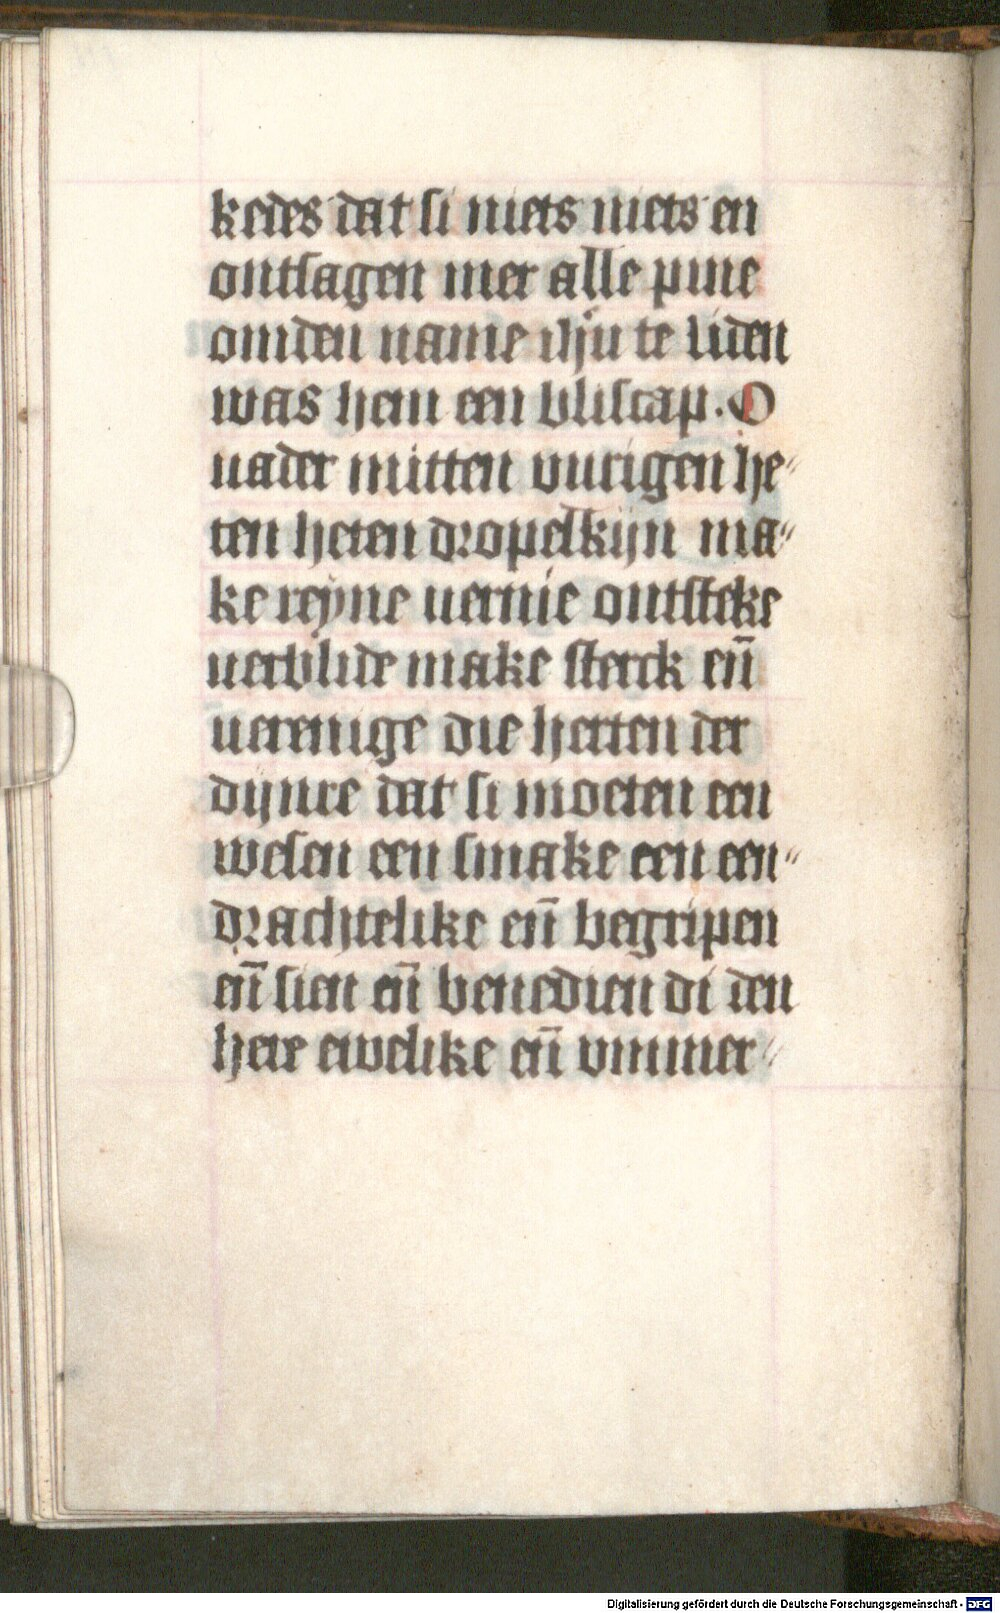 kedes dat si niets niets en
ontsagen mer alle pine
omden name ihu te liden
was hem een bliscap. O
uader mitten vurigen he-
ten heten dropelkijn ma-
ke reyne uernie ontsteke
uerblide make sterck en̄
uerenige die herten der
dijnre dat si moeten een
wesen een smake een een-
drachtelike en̄ begripen
en̄ sien en̄ benedien di den
here ewelike en̄ vmmer-
Digitalisierung gefördert durch die Deutsche Forschungsgemeinschaft - DFG